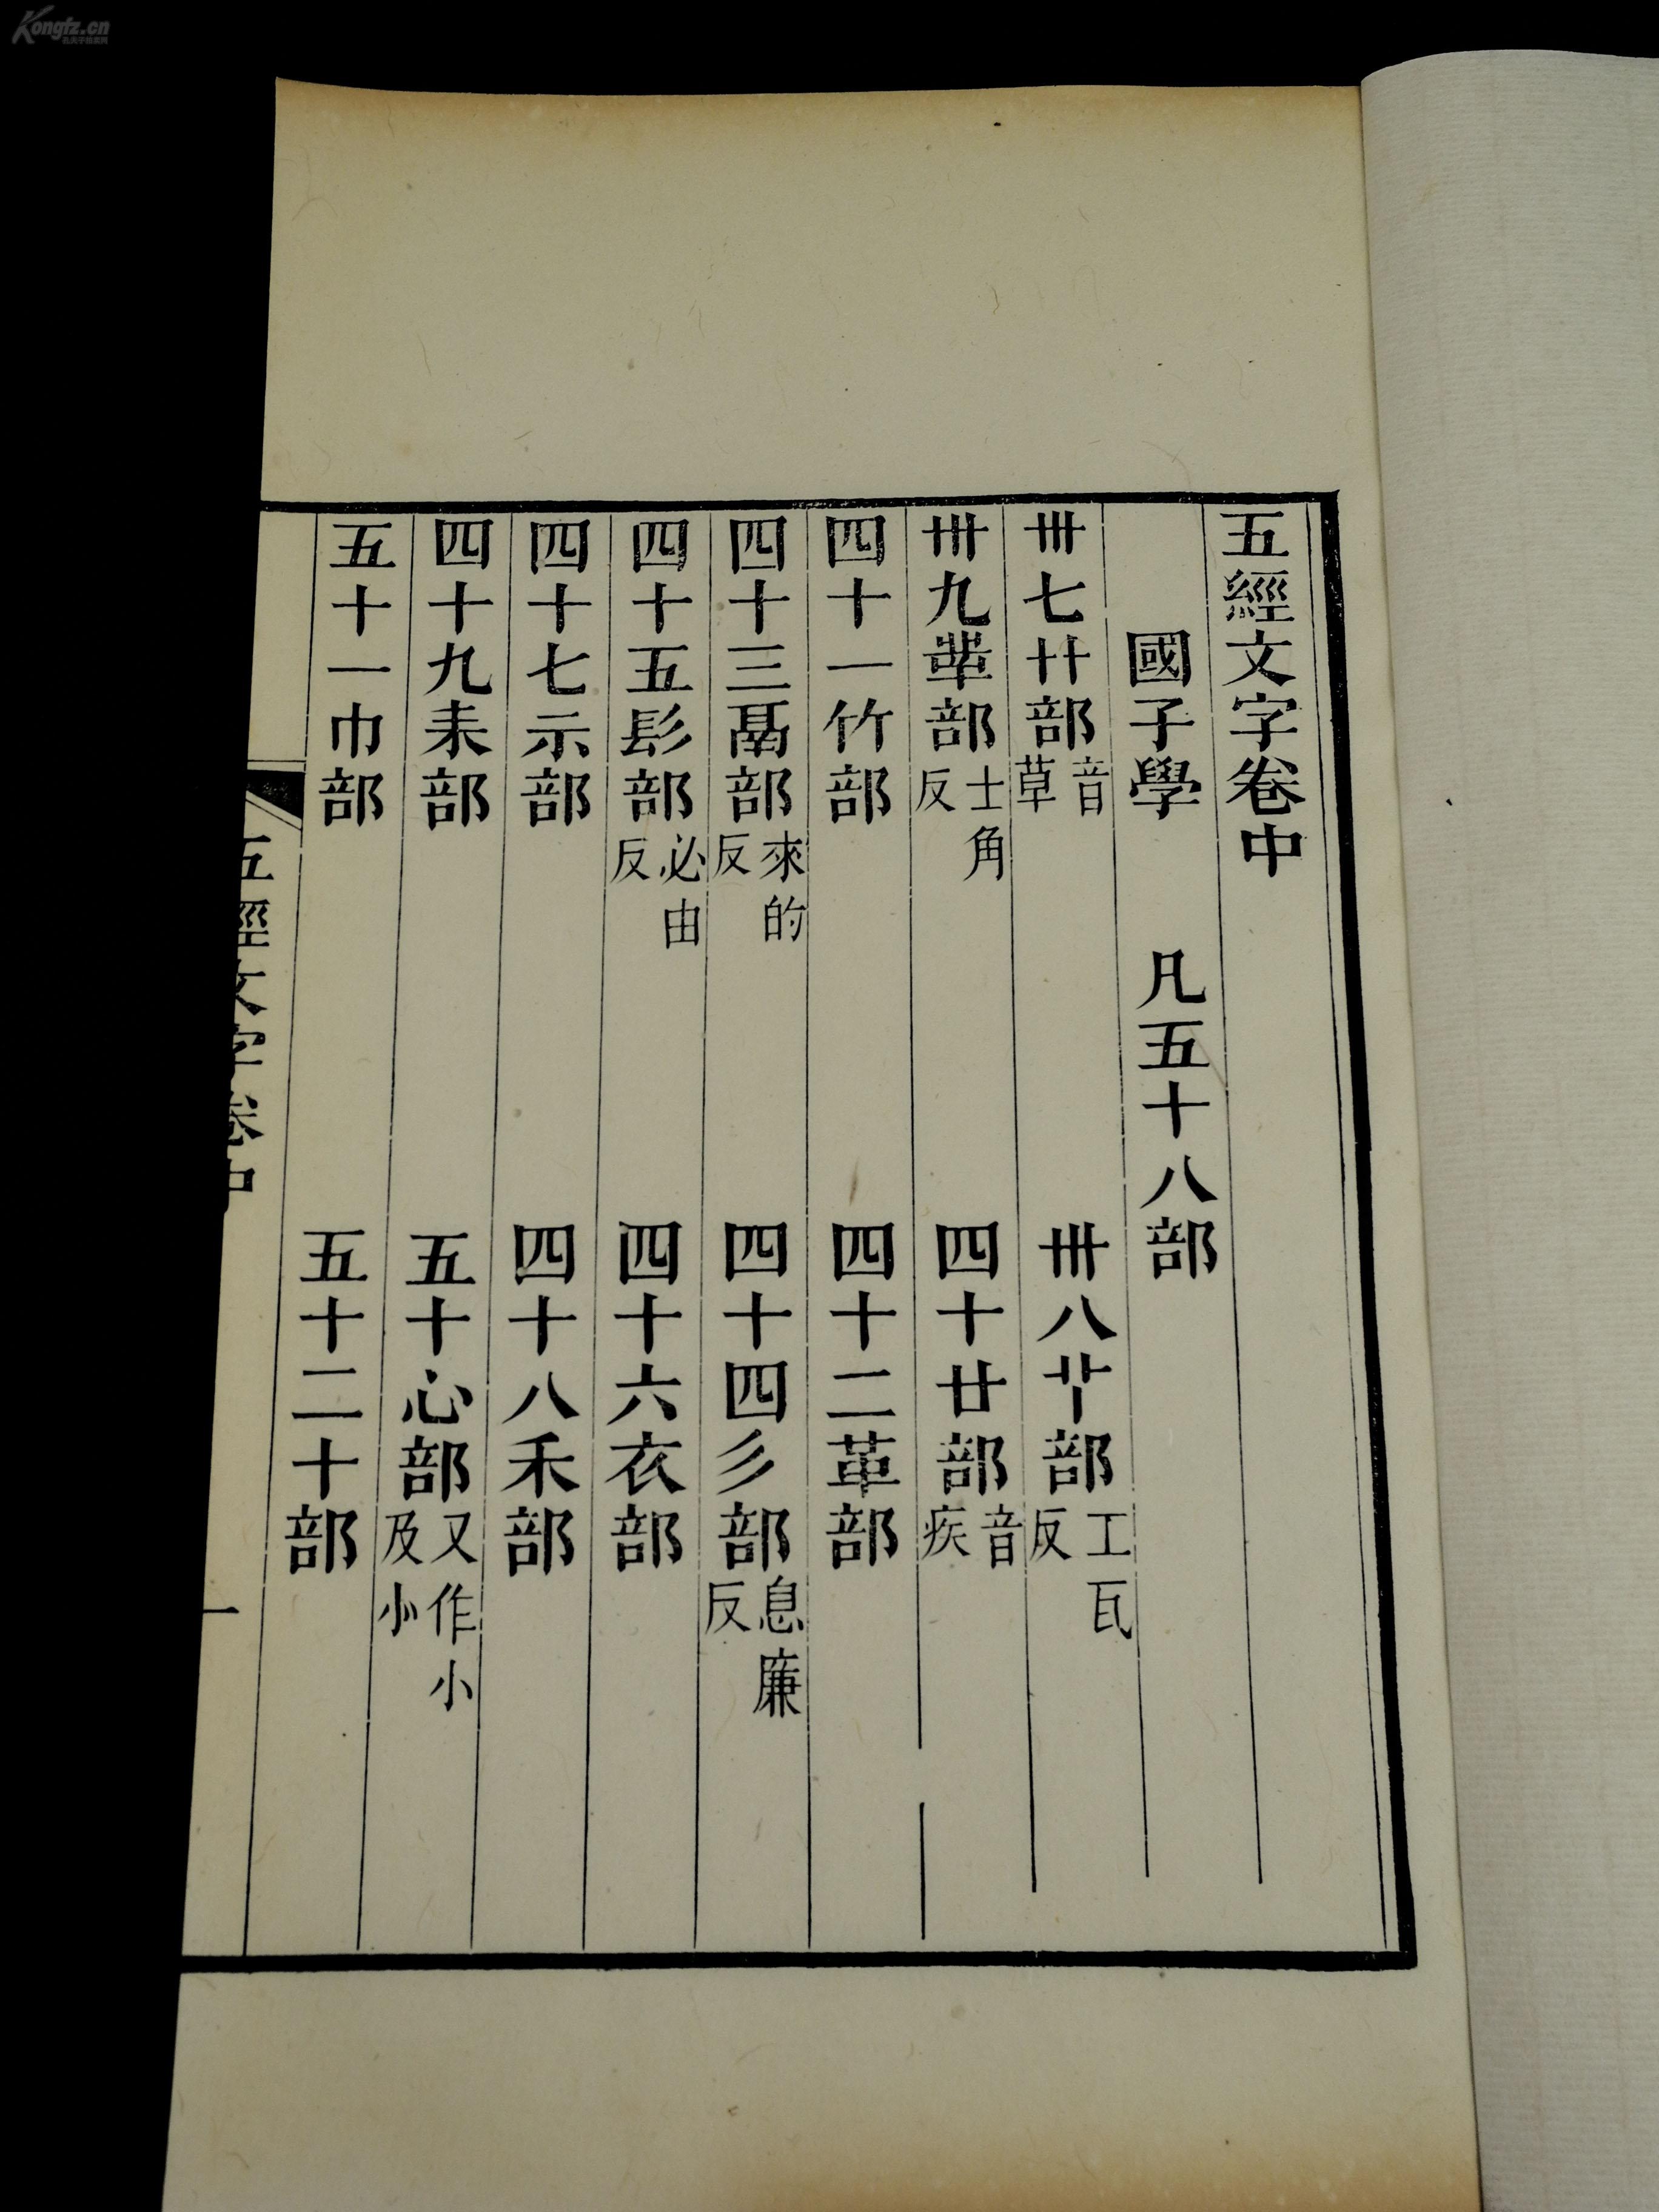 五經文字卷中
國子學 凡五十八部
卅七艹部音草 卅八𦫳部工瓦反
卅九丵部士角反 四十廿部音疾
四十一竹部 四十二革部
四十三鬲部來的反 四十四彡部息廉反
四十五髟部必由反 四十六衣部
四十七示部 四十八禾部
四十九耒部 五十心部又作小及㣺
五十一巾部 五十二十部
五經文字卷中
一
Kongfz.cn